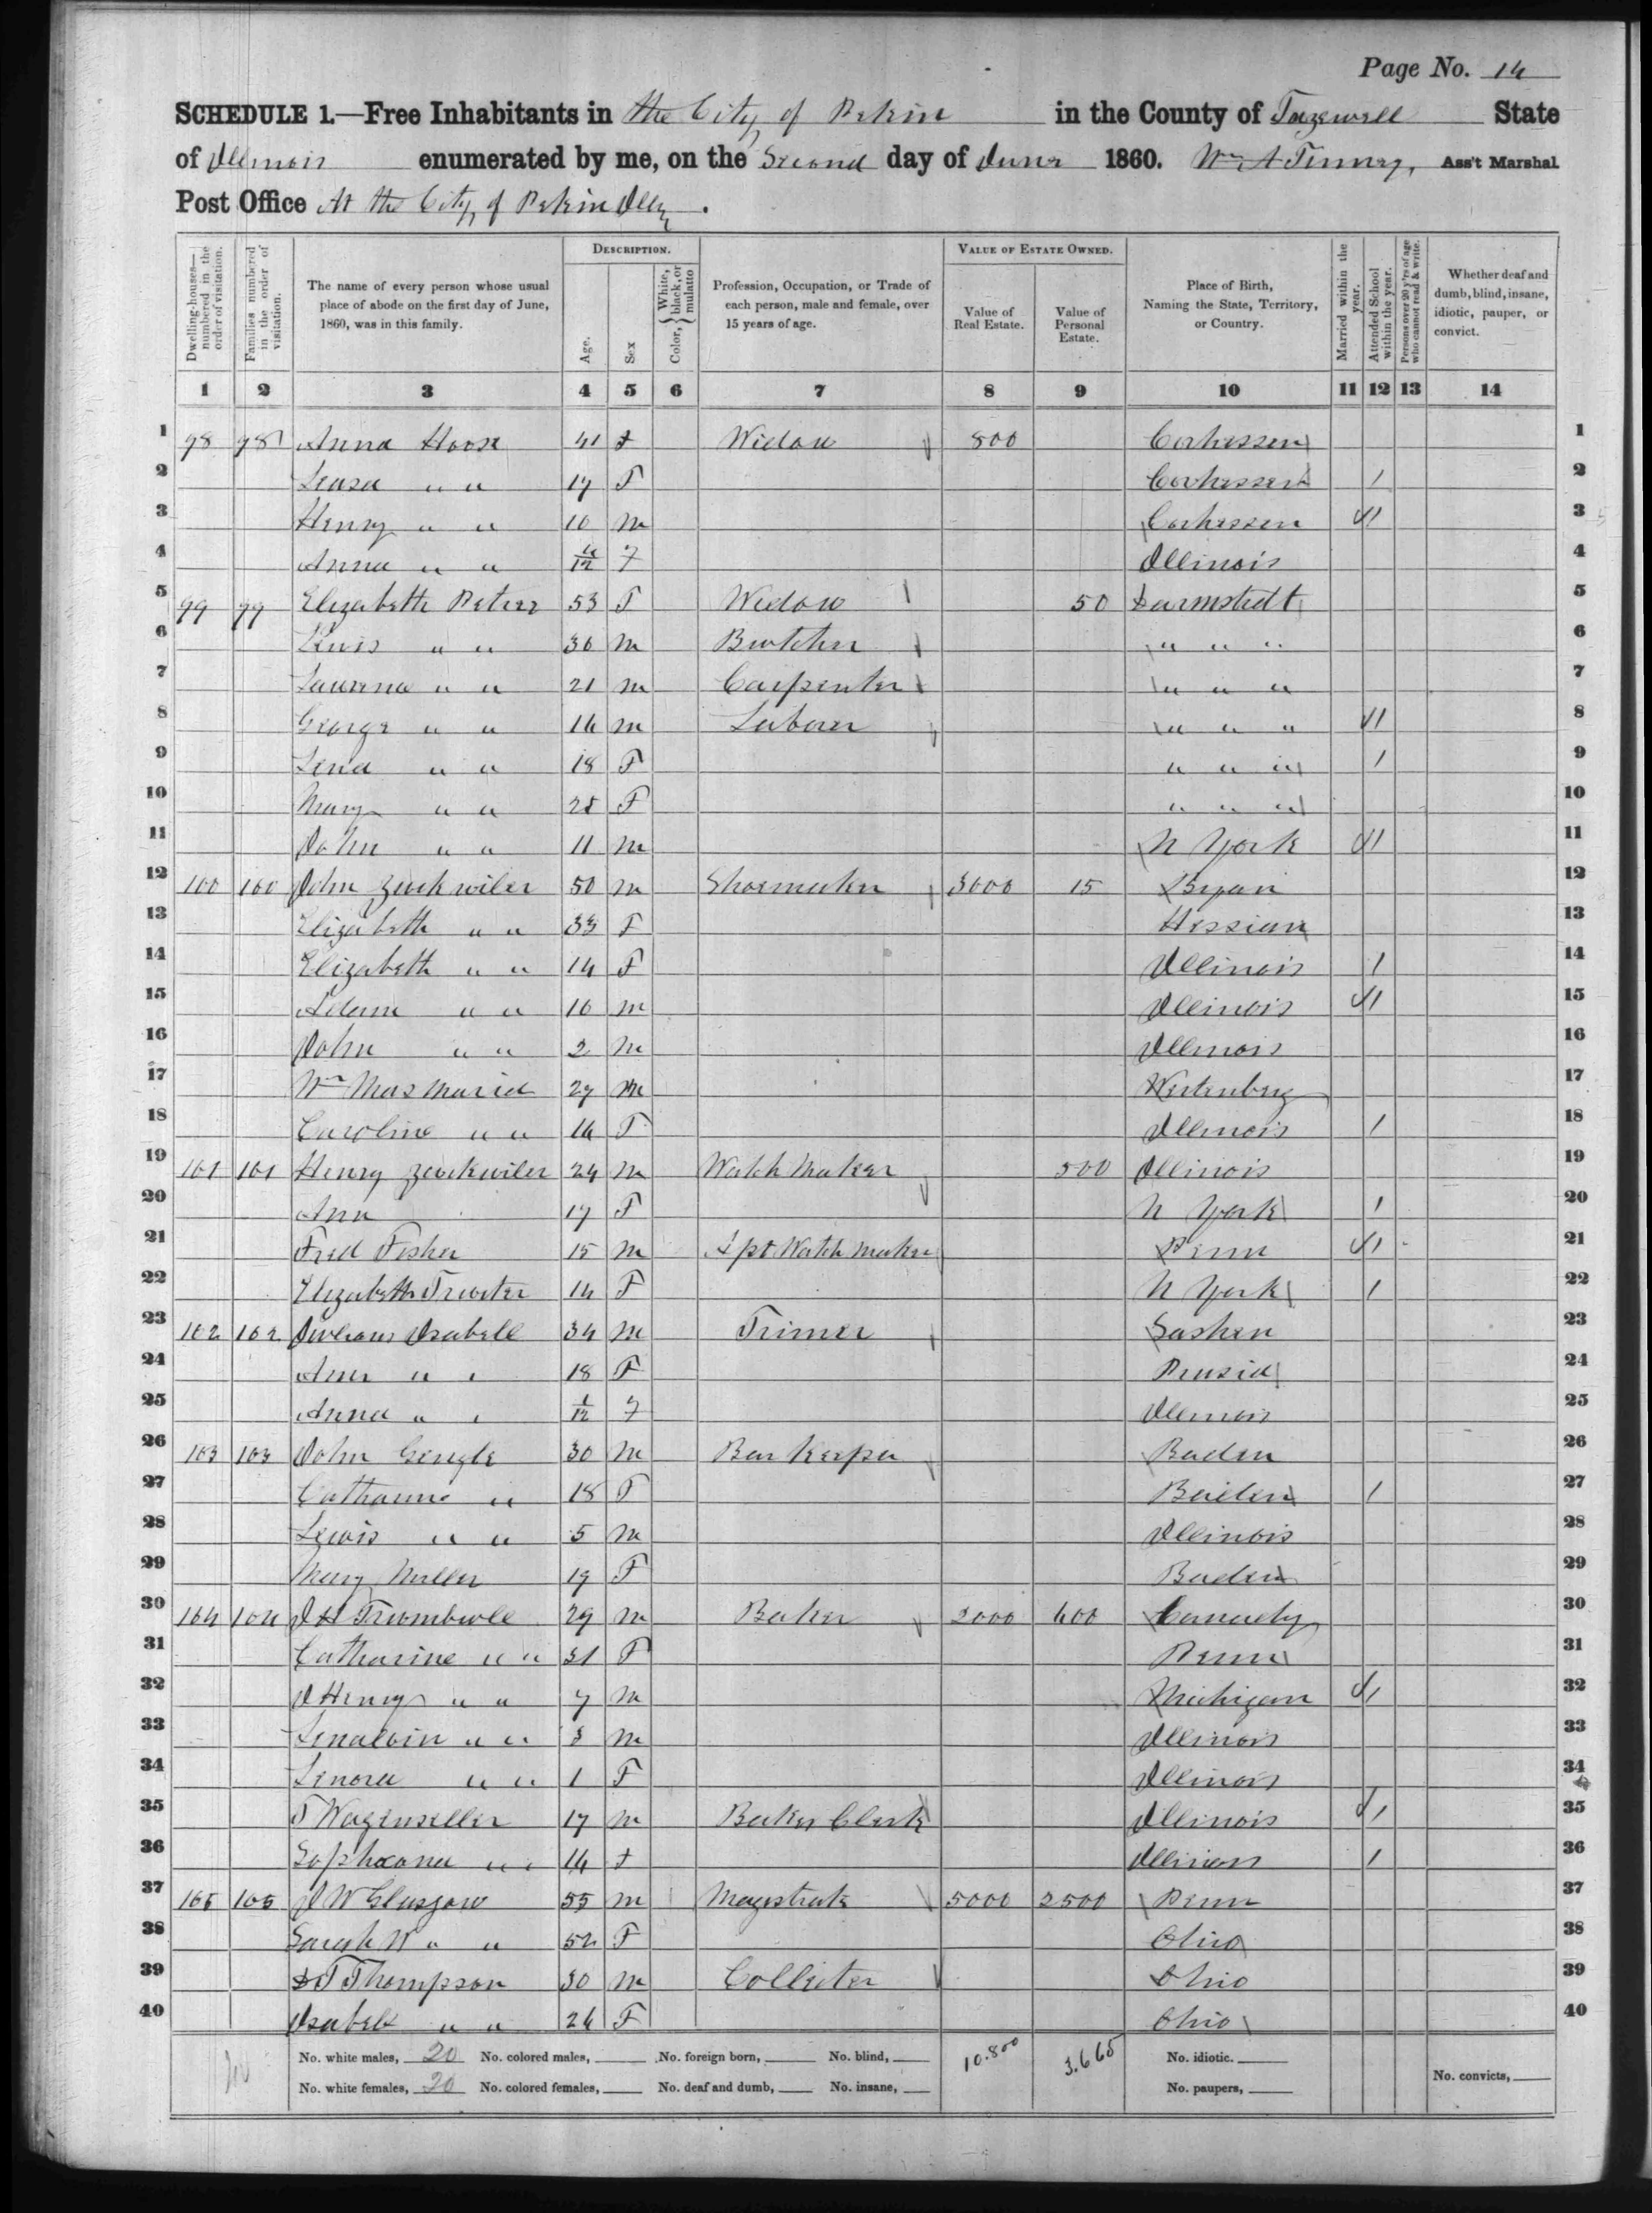 Page No. 14
SCHEDULE 1.—Free Inhabitants in the City of Pekin in the County of Tazewell State
of Illinois enumerated by me, on the Second day of June 1860. Wm A Tinney, Ass't Marshal
Post Office At the City of Pekin Ills.
Dwelling-houses—numbered in the order of visitation.
Families numbered in the order of visitation.
The name of every person whose usual place of abode on the first day of June, 1860, was in this family.
DESCRIPTION.
Age.
Sex
Color, { White, black, or mulatto
Profession, Occupation, or Trade of each person, male and female, over 15 years of age.
VALUE OF ESTATE OWNED.
Value of Real Estate.
Value of Personal Estate.
Place of Birth, Naming the State, Territory, or Country.
Married within the year.
Attended School within the year.
Persons over 20 y'rs of age who cannot read & write.
Whether deaf and dumb, blind, insane, idiotic, pauper, or convict.
1 2 3 4 5 6 7 8 9 10 11 12 13 14
1 98 98 Anna 41 f Widow 800 Corhessen 1
2 " " 17 F Corhessen / 2
3 Henry " " 10 m Corhessen / 3
4 Anna " " /12 F Illinois 4
5 99 99 Elizabeth Peters 53 F Widow 50 Darmstedt 5
6 Lewis " " 30 m Butcher " " " 6
7 " " 21 m Carpenter " " " 7
8 George " " 16 m Laborer " " " / 8
9 Lena " " 18 F " " " / 9
10 Mary " " 25 F " " " 10
11 John " " 11 m N York / 11
12 100 100 John Zuckwiler 50 m Shoemaker 3000 15 12
13 Elizabeth " " 33 F Hessian 13
14 Elizabeth " " 14 F Illinois / 14
15 Adam " " 10 m Illinois / 15
16 John " " 2 m Illinois 16
17 Wm 27 m Wertenberg 17
18 Caroline " " 14 F Illinois / 18
19 101 101 Henry Zuckwiler 24 m Watch Maker 500 Illinois 19
20 Ann 17 F N York / 20
21 Fred Fisher 15 m Apt Watch Maker Penn / 21
22 Elizabeth 14 F N York / 22
23 102 102 Isabell 34 m Trimer 23
24 Ann " " 18 F Prusia 24
25 Anna " " 1/12 F Illinois 25
26 103 103 John 30 m Bar Keeper Baden 26
27 Catharine " 18 F Baden / 27
28 Lewis " " 5 m Illinois 28
29 Mary Miller 19 F Baden 29
30 104 104 J H 29 m Baker 2000 600 Canady 30
31 Catharine " " 31 F Penn 31
32 J Henry " " 7 m Michigan / 32
33 " " 3 m Illinois 33
34 Lenora " " 1 F Illinois 34
35 T Wagenseller 17 m Illinois / 35
36 " " 14 f Illinois / 36
37 105 105 J W Glasgow 55 m Magistrate 5000 2500 Penn 37
38 Sarah W " " 52 F Ohio 38
39 T Thompson 30 m Collecter Ohio 39
40 Isabell " " 26 F Ohio 40
No. white males, 20 No. colored males, No. foreign born, No. blind, 10.800 3.665 No. idiotic.
No. white females, 20 No. colored females, No. deaf and dumb, No. insane, No. paupers, No. convicts,